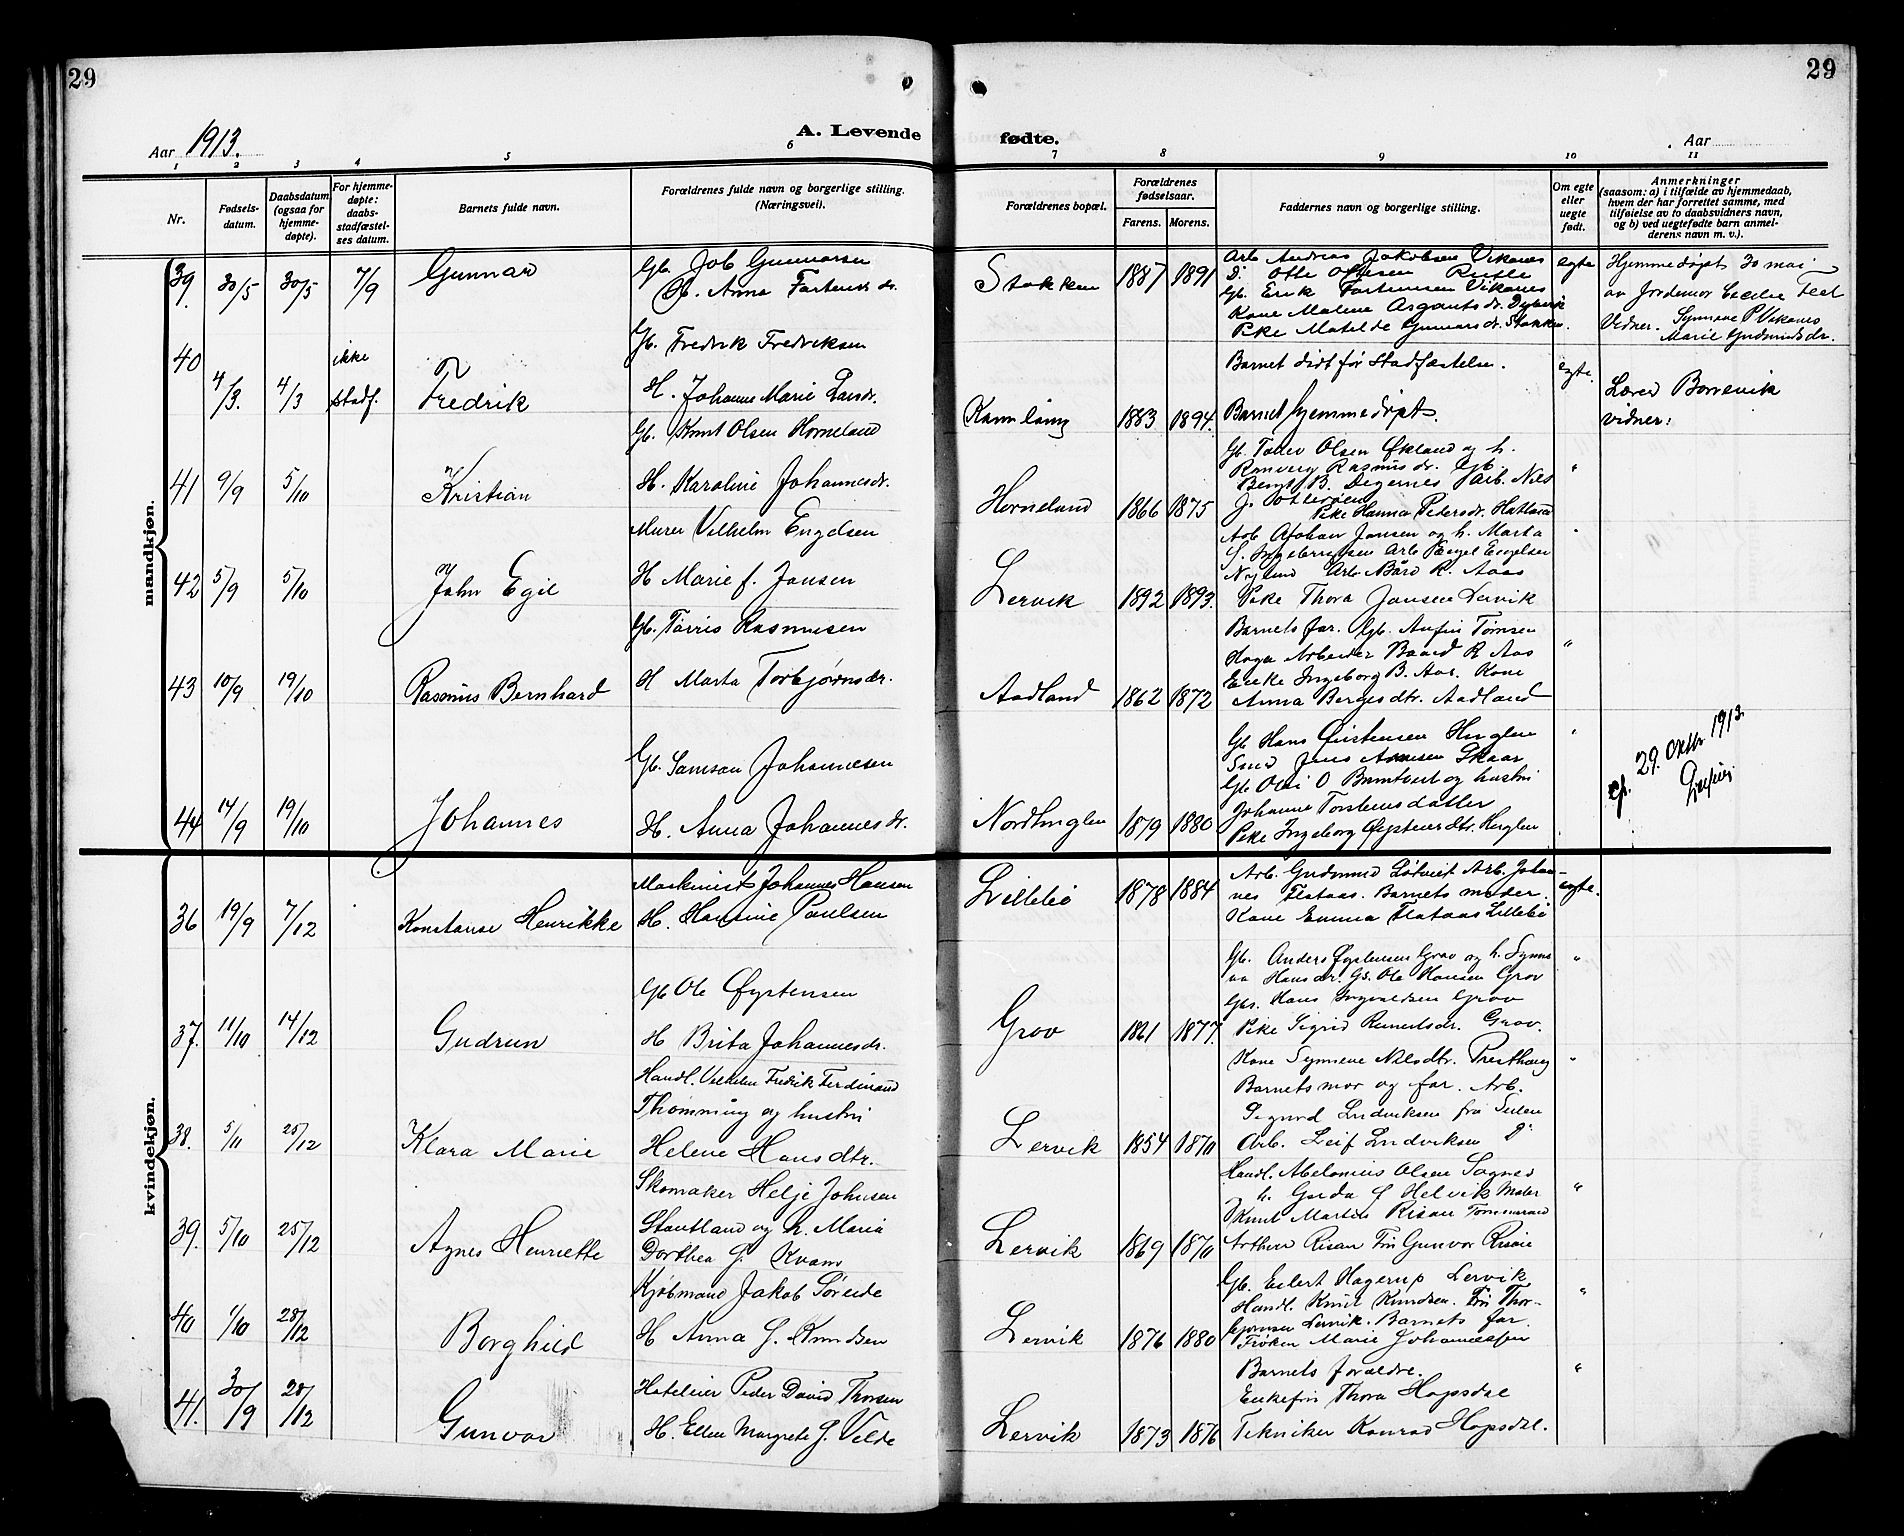 29
29
Aar 1913.
A. Levende
fødte.
Aar
1 2 3 4 5 6 7 8 9 10 11
Nr.
Fødsels-
datum.
Daabsdatum
(ogsaa for
hjemme-
døpte).
For hjemme-
døpte:
daabs-
stadfæstel-
ses datum.
Barnets fulde navn.
Forældrenes fulde navn og borgerlige stilling.
(Næringsvei).
Forældrenes bopæl.
Forældrenes
fødselsaar.
Farens. Morens.
Faddernes navn og borgerlige stilling.
Om egte
eller
uegte
født.
Anmerkninger
(saasom: a) i tilfælde av hjemmedaab,
hvem der har forrettet samme, med
tilføielse av to daabsvidners navn,
og b) ved uegtefødte barn anmel-
derens navn m. v.).
mandkjøn.
39. 30/5 30/5 7/9 Gunnar
Gb. Job Gunnarsen
H. Anna Fartensdr.
Stokken 1887 1891
Arb. Andreas Jakobsen Vikanes
Otte Ottesen Rutle
Gb. Erik Fartensen Vikanes
Kone Malene Asgautsdr. Dyvik
Pike Matilde Gunnarsdr. Stokken.
egte
Hjemmedøpt 30 mai
av Jordemor Cecilie
Vidner. Synneve P Vikanes
Marie Gudmundsdr.
40 4/3. 4/3 ikke
stadf.
Fredrik
Gb. Fredrik Fredriksen
H. Johanne Marie Larsdr.
1883 1894.
Barnet didt før Stadfæstelse.
Barnet hjemmedøpt.
egte.
Lærer Borrevik
vidner:
41 9/9 5/10 Kristian
Gb. Knut Olsen Horneland
H. Karoline Johannesdr.
Horneland 1866 1875
Gb. Tollev Olsen Økland og h.
Rønnveig Rasmusdr. Gb.
Bengt B. Digernes Arb. Nils
J. Otterøen
Pike Hanna Pedersdr. Hatland
"
42 5/9 5/10 John Egil
Murer Vilhelm Engelsen
H Marie f. Jansen
Lervik 1892 1893.
Arb Johan Jansen og h. Marta
S. Ingebrigtsen Arb Engelsen
Nylund Arb Bård R. Aaas
Pike Thora Jansen Lervik
43 10/9 19/10 Rasmus Bernhard
Gb. Tørris Rasmusen
H Marta Torbjørnsdr.
Aadland 1862 1872
Barnets far. Gb. Anfin Tømsen
Haga Arbeider Baard R Aas
Enke Ingeborg B. Aas. Kone
Anna Bergesdtr. Aadland
"
44 14/9 19/10 Johannes
Gb. Samson Johannesen
H. Anna Johannesdr.
Nordhuglen 1879 1880
Gb Hans Øistensen Huglen
Smed Jens Skaar
Gb Ole O Bramtveit og hustru
Johanne Torstensdatter
Pike Ingeborg Øystensdtr. Huglen
"
29. Oktbr 1913.
kvindekjøn.
36 19/9 7/12 Konstanse Henrikke
Maskinist Johannes Hansen
H. Hansine Paulsen
Lillebø 1878 1884
Arb. Gudmund Løtveit Arb. Johan-
nes Flataas. Barnets moder.
Kone Emma Flataas Lillebø
egte.
37. 11/10 14/12 Gudrun
Gb Ole Øystensen
H Brita Johannesdr.
Grov 1861 1877.
Gb. Anders Øystensen Grov og h. Synne
va Hansdr. Gs. Ole Hansen Grov
Gbs. Hans Ingvaldsen Grov
Pike Sigrid Reinertsdr. Grov.
"
38. 5/11 25/12 Klara Marie
Handl. Vilhelm Fredrik Ferdinand
Thomming og hustru
Helene Hansdtr.
Lervik 1854 1870
Kone Synneve Nilsdtr. Presthaug
Barnets mor og far. Arb.
Sigurd Ludviksen fra
Arb. Leif Ludviksen Do
"
39. 5/10 25/12 Agnes Henriette
Skomaker Helje Johnsen
Stautland og h. Maria
Dorthea J. Kvam
Lervik 1869 1870
Handl. Abelonius Olsen Sagnes
h. Gerda f Helvik Maler
Knut Martin Risan Tømmermand
Arthur Risan Frk Gunvor Risøie
"
40 1/10 28/12 Borghild
Kjøbmand Jakob Søreide
H Anna J. Knudsen
Lervik 1876 1880
Gb. Eilert Hagerup Lervik
Handl. Knut Knudsen. Fru Thor-
bjørnsen Lervik. Barnets far.
Frøken Marie Johannessen
"
41. 30/9 28/12 Gunvor
Hoteleier Peder David Thorsen
H. Ellen Margrete J. Velde
Lervik 1873 1876
Barnets forældre.
Enkefru Thora Hopsdal
Tekniker Konrad Hopsdal.
"